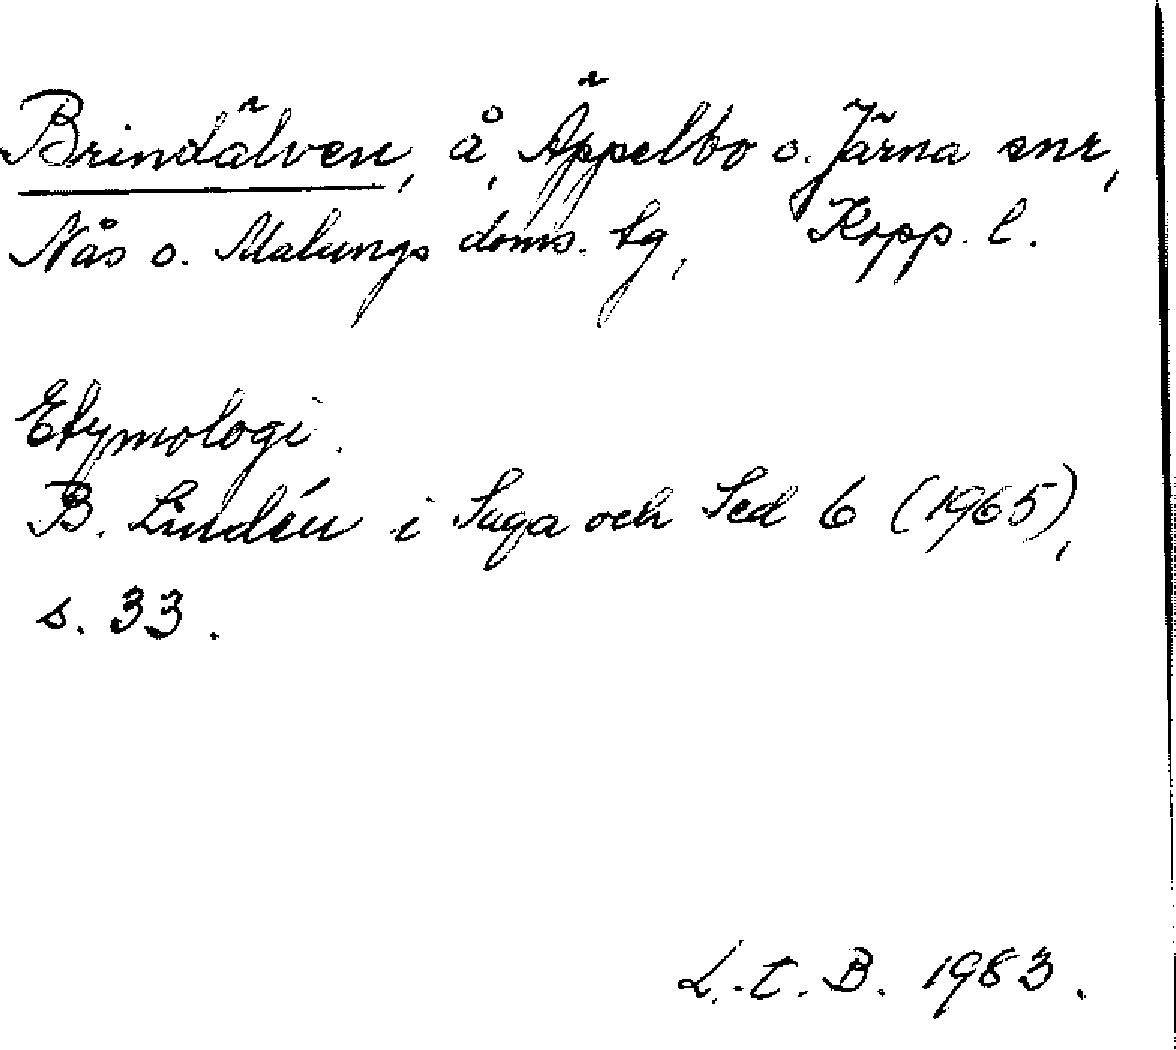 Brindälven, å, Äppelbo o. Järna snr,
Nås o. Malungs doms. tg, Kopp. l.
Etymologi.
B. Lindén i Saga och Sed 6 (1965),
s. 33.
L. C. B. 1983.